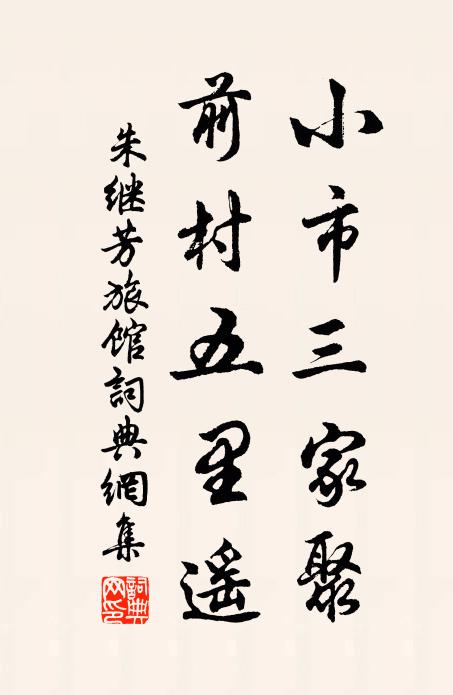 小市三家聚
前村五里遥
朱继芳旅馆詞典網集
詞典网印